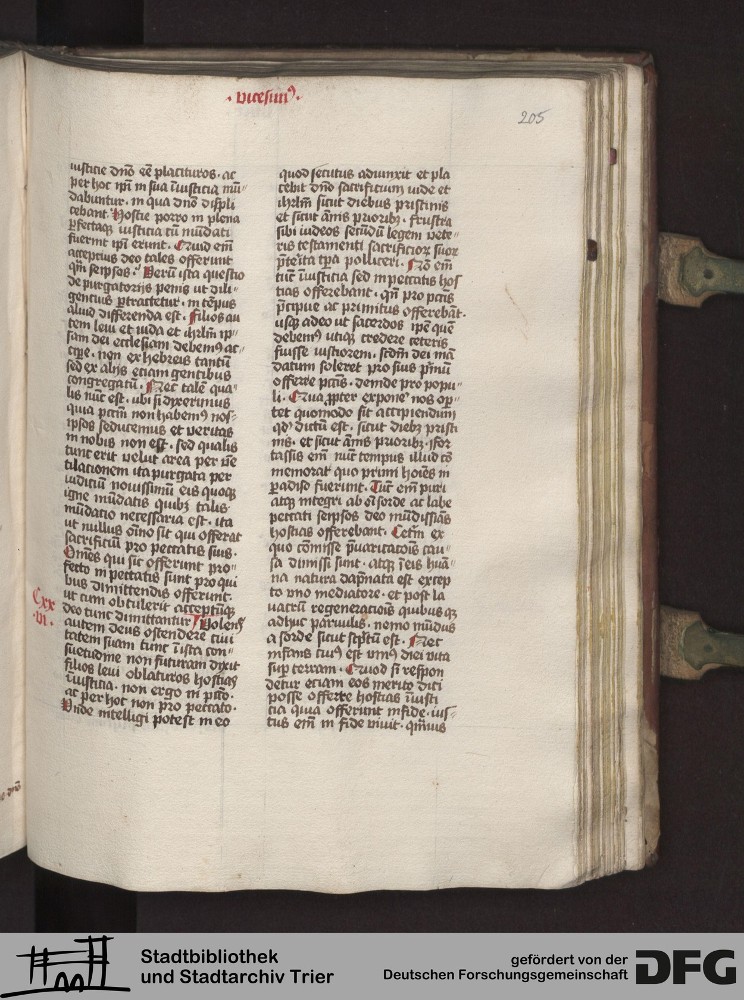 · vicesim9 ·
205
iusticie dno eē placituros · ac
per hoc ipi in sua iusticia mū-
dabuntur · in qua dno displi
cebant · Hostie porro in plena
perfectaqȝ iusticia cū mūdati
fuerint ipi erunt · Quid em̄
acceptius deo tales offerunt
qm̄ seipsos · Verū ista questio
de purgatorijs penis ut dili-
gentius ptractetur · in tēpus
aliud differenda est · Filios au
tem leui et iuda et ihrlm̄ ip-
sam dei ecclesiam debem9 ac-
cipe · non ex hebreis tantū
sed ex alijs etiam gentibus
congregatā · Nec talē qua-
lis nūc est · ubi si dixerimus
quia pctm̄ non habem9 nos-
ipsos seducimus et veritas
in nobis non est · sed qualis
tunc erit velut area per ve
tilationem ita purgata per
iudiciū nouissimū eis quoqȝ
igne mūdatis quibȝ talis
mūdatio necessaria est · ita
ut nullus oīno sit qui offerat
sacrificiū pro peccatis suis ·
Omēs qui sic offerunt pro-
fecto in peccatis sunt pro qui
bus dimittendis offerunt ·
ut cum obtulerit acceptūqȝ
deo tunc dimittantur Volens
Cxx
·vi·
autem deus ostendere ciui
tatem suam tunc ista con-
suetudine non futuram dixit
filios leui oblaturos hostias
iusticia · non ergo in pctō ·
ac per hoc non pro peccato ·
Vnde intelligi potest in eo
quod secutus adiunxit et pla
cebit dno sacrificium iude et
ihrlm̄ sicut diebus pristinis
et sicut ānis prioribȝ · frustra
sibi iudeos secūdū legem vete-
ris testamenti sacrificioꝝ suoꝝ
pterita tpa polliceri · Nō em̄
tūc iusticia sed in peccatis hos
tias offerebant · qn̄ pro pctis
pcipue ac primitus offerebāt ·
usqȝ adeo ut sacerdos ipe quē
debem9 utiqȝ credere ceteris
fuisse iustiorem · scdm̄ dei mā
datum soleret pro suis pmū
offerre pctis · deinde pro popu-
li · Qua ppter expone nos op-
tet quomodo sit accipiendum
qd dictū est · sicut diebȝ pristi
nis · et sicut ānis prioribȝ · for
tassis em̄ nūc tempus illud cō
memorat quo primi hoīes in
padiso fuerunt · Tūc em̄ puri
atqȝ integri ab oī sorde ac labe
peccati seipsos deo mūdissias
hostias offerebant · Cetm̄ ex
quo cōmisse puaricatōis cau-
sa dimissi sunt · atqȝ ī eis huā-
na natura dapnata est excep
to vno mediatore · et post la
uacrū regeneratiōis quibusqȝ
adhuc paruulis · nemo mūdus
a sorde sicut scptū est · Nec
infans cui9 est vni9 diei vita
sup terram · Quod si respon
detur etiam eos merito dici
posse offerre hostias iusti
cia quia offerunt in fide · ius-
tus em̄ in fide viuit · qmuis
Stadtbibliothek
und Stadtarchiv Trier
gefördert von der
Deutschen Forschungsgemeinschaft
DFG